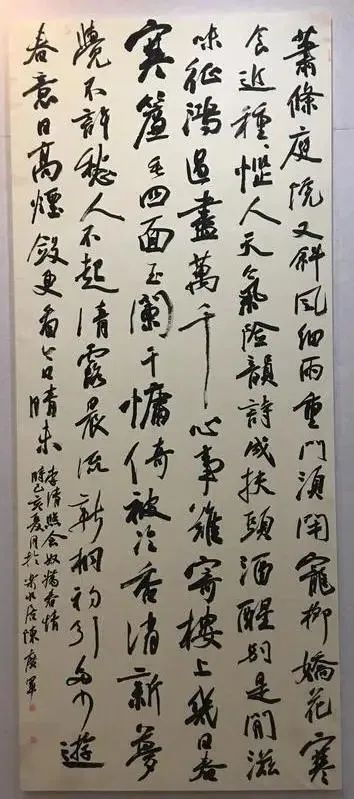 蕭條庭院又斜風細雨重門須閉寵柳嬌花寒
食近種種惱人天氣險韻詩成扶頭酒醒別是閒滋
味征鴻過盡萬千心事難寄樓上幾日春
寒簾垂四面玉闌干慵倚被冷香消新夢
覺不許愁人不起清露晨流新桐初引多少遊
春意日高煙斂更看今日晴未
李清照念奴嬌春情
時己亥夏月於居陳軍